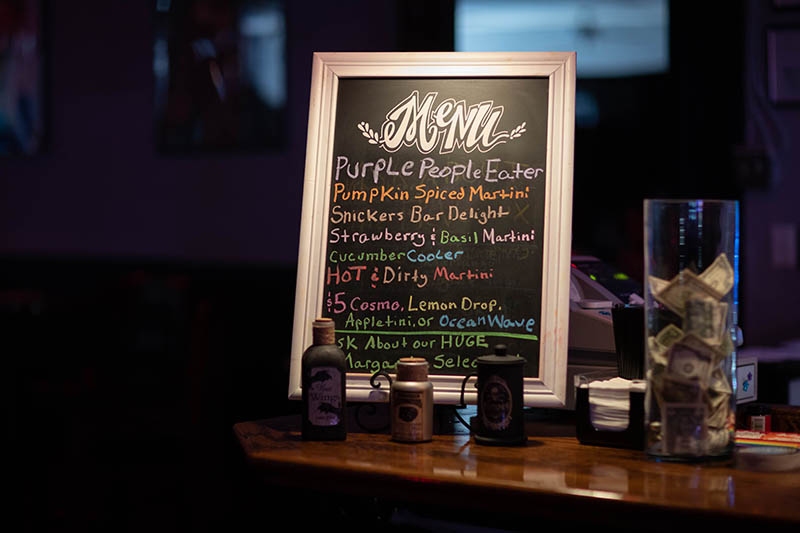 Menu
Purple People Eater
Pumpkin Spiced Martini
Snickers Bar Delight
Strawberry & Basil Martini
Cucumber Cooler
HOT & Dirty Martini
$5 Cosmo, Lemon Drop,
Appletini, or Ocean Wave
sk About our HUGE
Marga Selec
Wing